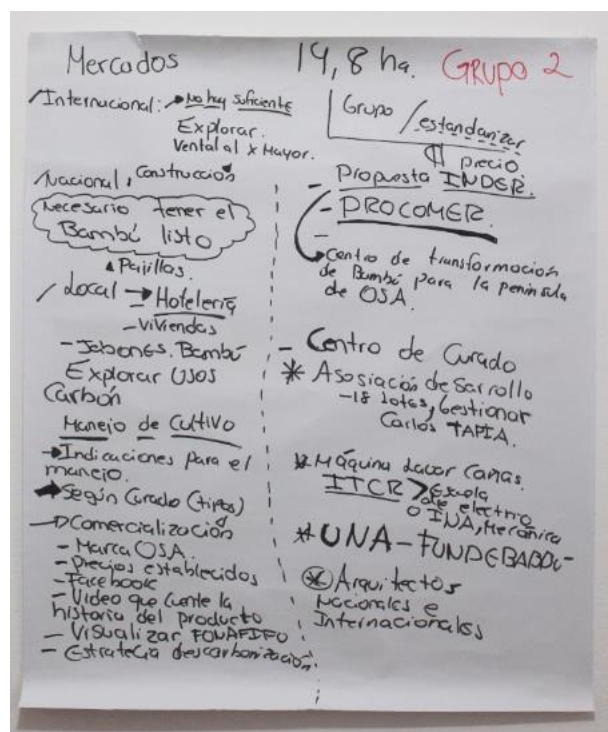 Mercados
Internacional: No hay suficiente
Explorar.
Vental al x Mayor.
Nacional, Construcción
Necesario tener el
Bambú listo
Pajillas.
Local → Hotelería
- Viviendas
- Jabones. Bambú
Explorar Usos
Carbón
Manejo de Cultivo
→ Indicaciones para el
manejo.
→ Según Curado (tipos)
→ Comercialización
- Marca OSA.
- Precios establecidos
- Facebook
- Video que cuente la
historia del producto
- Visualizar FONAFIFO
- Estrategia descarbonización.
14,8 ha. GRUPO 2
Grupo / estandarizar
precio
- Propuesta INDER.
- PROCOMER.
-
→ Centro de transformación
de Bambú para la península
de OSA.
- Centro de Curado
* Asociación desarrollo
- 18 lotes, Gestionar
Carlos TAPIA.
* Máquina Lavar Cañas.
ITCR > Escuela
de electro
o INA, Mecánica
* UNA - FUNDEBABÚ
* Arquitectos
Nacionales e
Internacionales